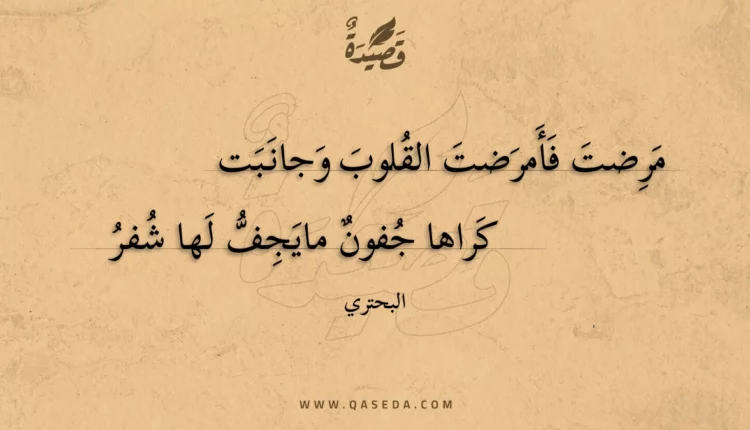 قَصِيْدَةٌ
مَرِضتَ فَأَمرَضتَ القُلوبَ وَجانَبَت
كَراها جُفونٌ مايَجِفُّ لَها شُفرُ
البحتري
WWW.QASEDA.COM